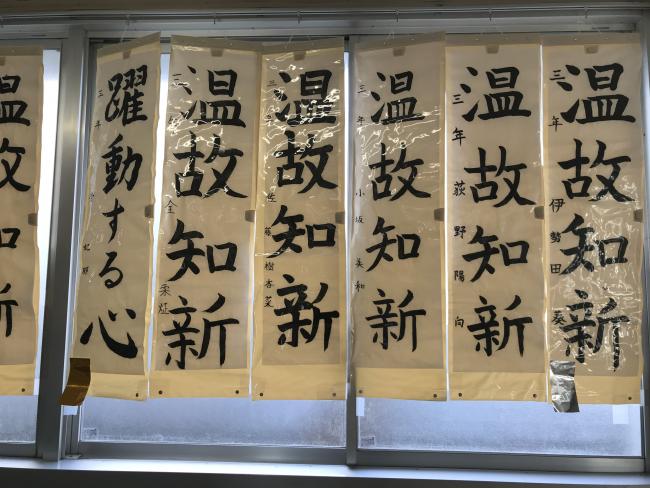 温故知新
三年 伊勢田
温故知新
三年 荻野陽向
温故知新
三年 小坂美和
温故知新
三年 佐藤樹杏菜
温故知新
三年
躍動する心
三年
温故知新